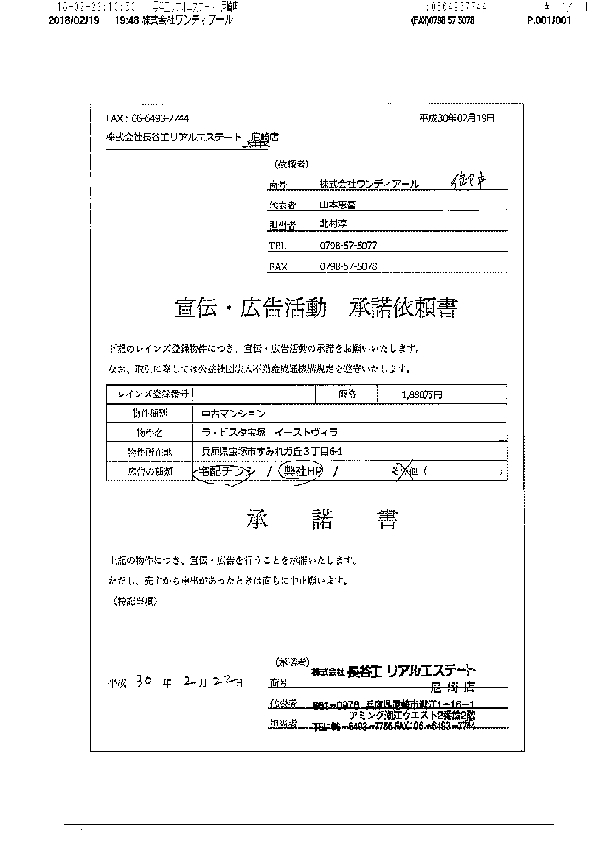 2018/02/19 19:48 株式会社ワンディアール (FAX)0798 57 5078 P.001/001
FAX：06-6493-7744 平成30年02月19日
株式会社長谷工リアルエステート 尼崎店
（依頼者）
商号 株式会社ワンディアール
代表者
担当者 北村淳
TEL 0798-57-5077
FAX 0798-57-5078
宣伝・広告活動 承諾依頼書
下記のレインズ登録物件につき、宣伝・広告活動の承諾をお願いいたします。
なお、取引に際しては公益社団法人不動産流通機構規定を遵守いたします。
レインズ登録番号 価格 1,890万円
物件種別 中古マンション
物件名 ラ・ビスタ宝塚 イーストヴィラ
物件所在地 兵庫県宝塚市すみれガ丘3丁目6-1
広告の種類 宅配チラシ / 弊社HP / その他（ ）
承 諾 書
上記の物件につき、宣伝・広告を行うことを承諾いたします。
ただし、売主から申出があったときは直ちに中止願います。
（特記事項）
（承諾者）
平成 30 年 2 月 22 日
商号 株式会社 長谷工 リアルエステート
尼崎店
代表者 661-0976 兵庫県尼崎市潮江1-16-1
アミング潮江ウエスト2番館2階
担当者 TEL:06-6493-7766 FAX:06-6493-7744